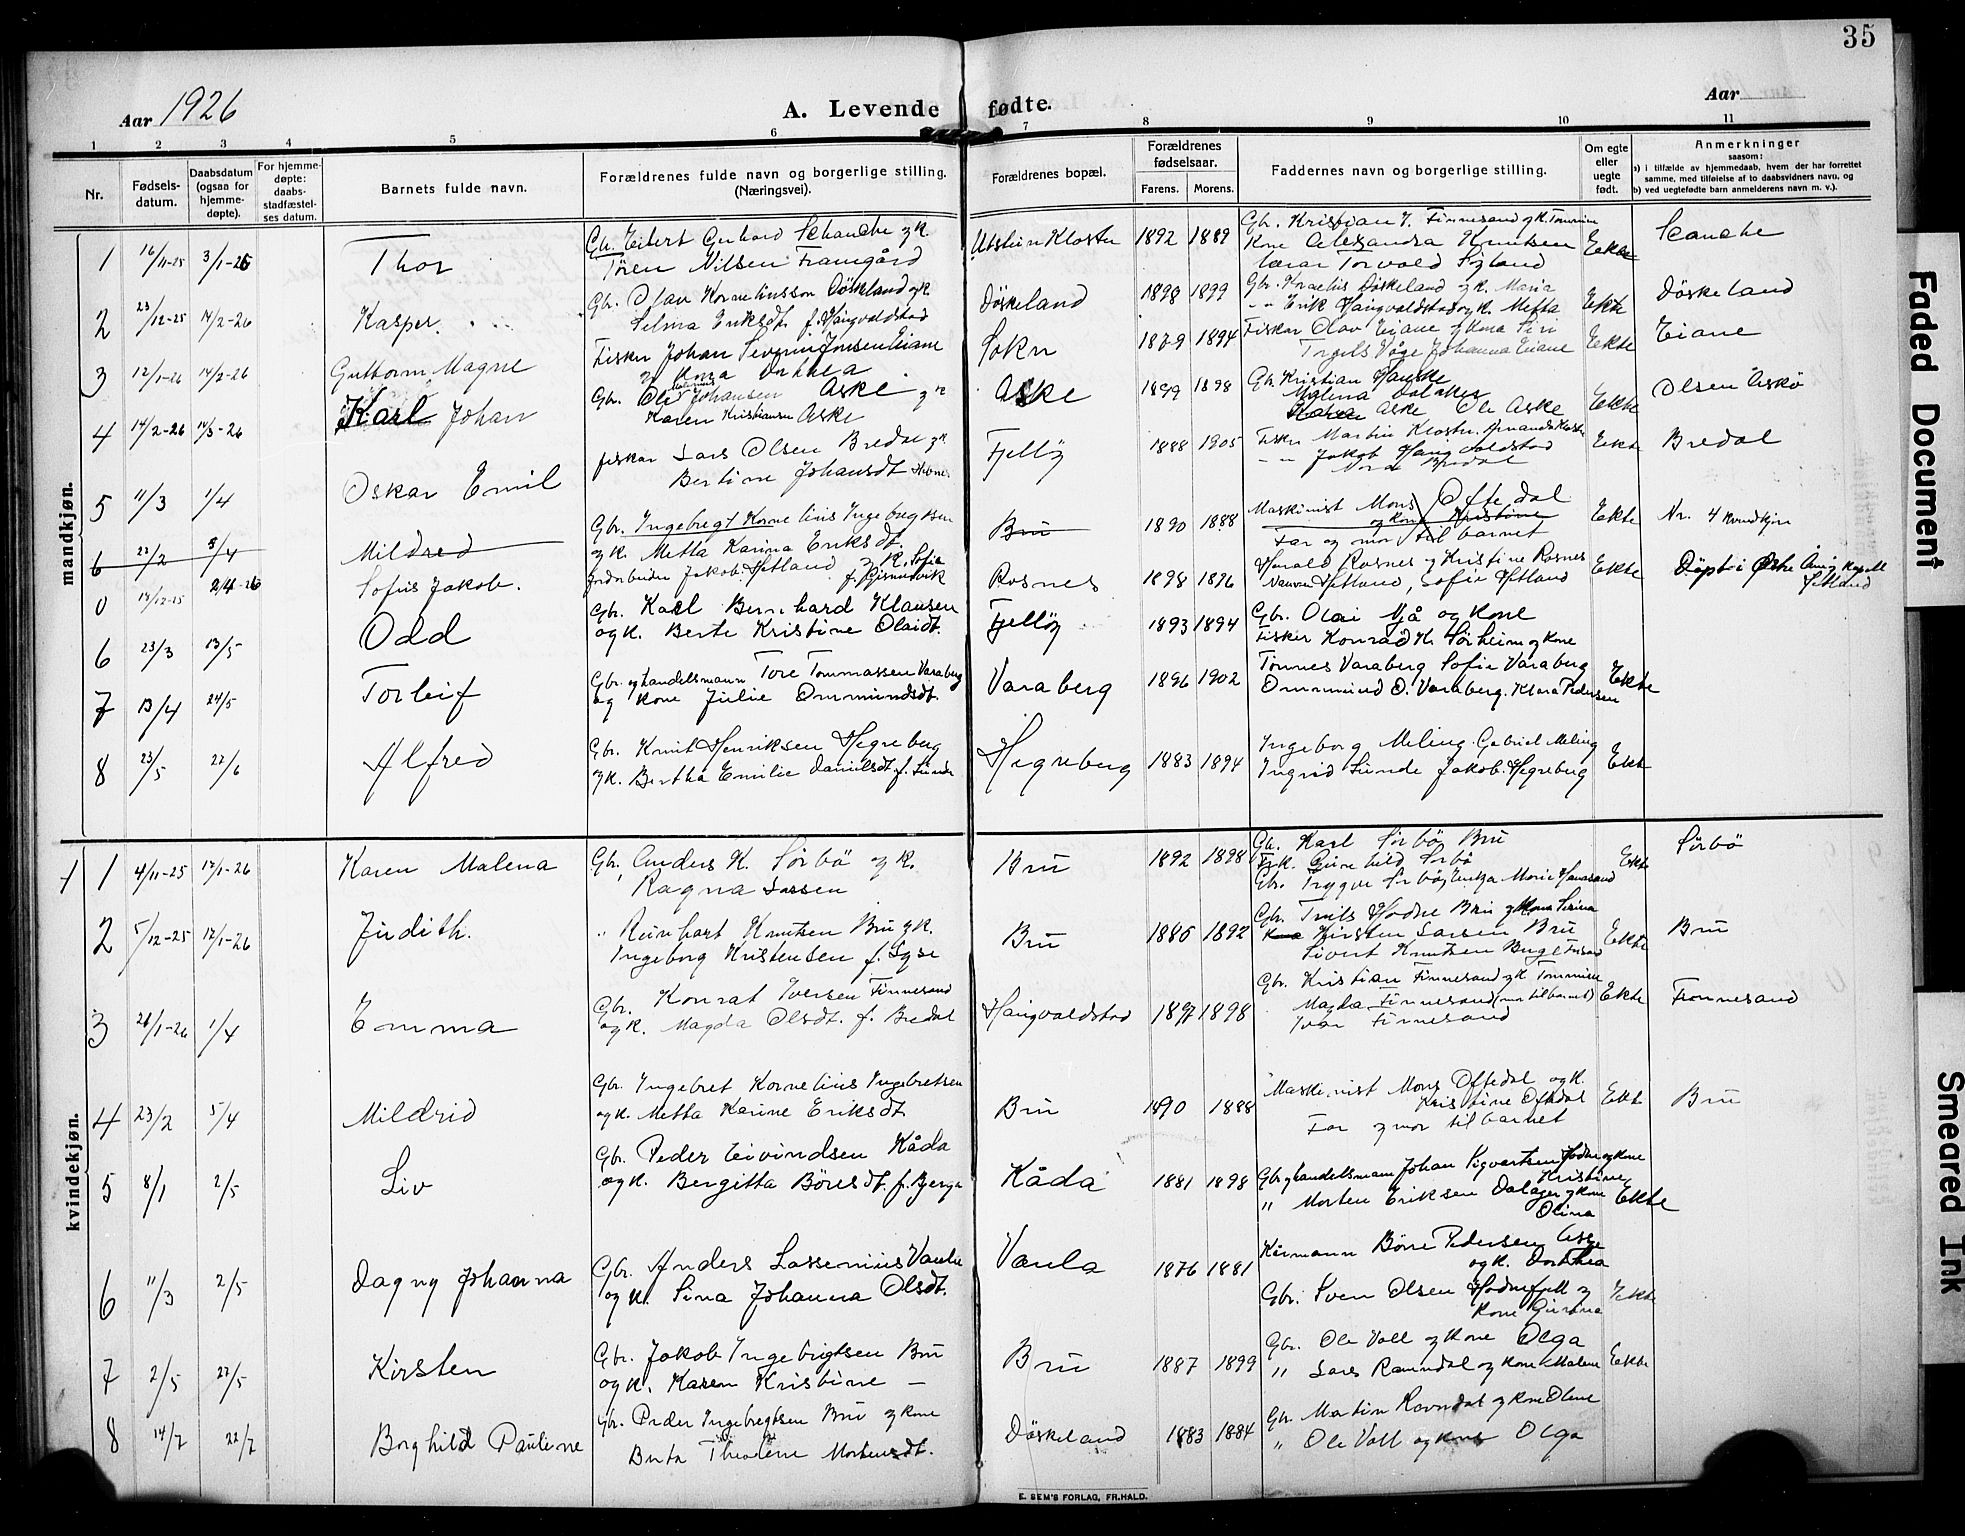 35
Aar 1926
A. Levende fødte.
Aar
1 2 3 4 5 6 7 8 9 10 11
Nr.
Fødsels-datum.
Daabsdatum (ogsaa for hjemme-døpte).
For hjemme-døpte: daabs-stadfæstel-ses datum.
Barnets fulde navn.
Forældrenes fulde navn og borgerlige stilling. (Næringsvei).
Forældrenes bopæl.
Forældrenes fødselsaar.
Farens. Morens.
Faddernes navn og borgerlige stilling.
Om egte eller uegte født.
Anmerkninger
saasom:
a) i tilfælde av hjemmedaab, hvem der har forrettet samme, med tilføielse af to daabsvidners navn, og
b) ved uegtefødte barn anmelderens navn m. v.).
mandkjøn.
1 16/11-25 3/1-26 Thor
Gerhard Schanche og k.
Nilsen Framgård
Utstein Kloster 1892 1889
Gbr. Kristian I. Finnesand og k. Tommine
Kone Alexandra Knutsen
lærar Torvald
Ekte
2 23/12-25 14/2-26 Kasper.
Gbr. Olav Kornelinsson Døskeland og k.
Selma Eriksdt. f. Haugvaldstad
Døskeland 1898 1899
Gbr. Kornelis Døskeland og k. Maria
" Erik Haugvaldstad og k. Metta
Ekte Døskeland
3 12/1-26 14/2-26 Guttorm Magne
Fisker Johan Severin Jonsen Eiane
Sokn 1879 1894
Fiskar Olav Eiane og kona Siri
Torgils Våge Johanna Eiane
Ekte Eiane
4 14/2-26 14/3-26 Karl Johan
Gbr. Ole Johansen Aske og k.
Karen Kristiansen Aske
Aske 1899 1898
Gbr. Kristian Hauske
Malena
Aske Ole Aske
Ekte Olsen Askø
5 11/3 1/4 Oskar Emil
fiskar Lars Olsen Bredal og k.
Bertine Johansdt.
Fjelløy 1888 1905
Fisker Martin Kloster, Amanda Kloster
" " Jakob Haugvaldstad
Nora Bredal
Ekte Bredal
6 22/2 5/4 Mildred
Gbr. Ingebregt Kornelius Ingebregtsen
og k. Metta Karina Eriksdt.
Bru 1890 1888
Maskinist Mons Oftedal
og kone Kristine
Far og mor til barnet
Ekte Nr. 4 kvindkjøn
0 14/12-25 2/4-26 Sofus Jakob.
Jordarbeider Jakob Hetland og k. Sofie
Rosnes 1898 1896
Harald Rosnes og Kristine Rosnes
Hetland, Sofie Hetland
Ekte Døpt i Kapell
Hetland
6 23/3 13/5 Odd
Gbr. Karl Bernhard Klausen
og k. Berte Kristine Olaidt.
Fjelløy 1893 1894
Gbr. Olai Mjå og kone
Fisker Konrad K. Sørheim og kone
7 13/4 24/5 Torleif
Gbr. og handelsmann Tore Tommassen Varaberg
og kone Julie Ommundsdt.
Varaberg 1896 1902
Tønnes Varaberg Sofie Varaberg
Ommund O. Varaberg. Klara Pedersen
Ekte
8 23/5 22/6 Alfred
Gbr. Knut Henriksen Hegreberg
og k. Bertha Emilie Danielsdt. f. Sunde
Hegreberg 1883 1894
Ingeborg Meling. Gabriel Meling
Ingrid Sunde Jakob Hegreberg
Ekte
kvindekjøn.
1 4/11-25 17/1-26 Karen Malena
Gbr. Anders K. Sørbø og k.
Ragna Lassen
Bru 1892 1898
Gbr. Karl Sørbø Bru
Gunhild Sørbø
Gbr. Trygve Sørbø, Marie
Ekte Sörbö
2 5/12-25 17/1-26 Judith.
" Reinhart Knutsen Bru og k.
Ingeborg Kristensen f. Lyse
Bru 1885 1892
Gbr. Hodne Bru og kona Serina
Kirsten Larsen Bru
Sivert Knutsen
Ekte Bru
3 26/1-26 1/4 Emma
Gbr. Konrat Iversen Finnesand
og k. Magda Olsdt. f. Bredal
Haugvaldstad 1897 1898
Gbr. Kristian Finnesand og k. Tommine
Magda Finnesand (mor til barnet)
Ivar Finnesand
Ekte Finnesand
4 23/2 5/4 Mildrid
Gbr. Ingebret Kornelius Ingebretsen
og k. Metta Karine Eriksdt.
Bru 1890 1888
Maskinist Mons Oftedal og k.
Kristine Oftedal
Far og mor til barnet
Ekte Bru
5 8/1 2/5 Liv
Gbr. Peder Eivindsen Kåda
og k. Bergitta Børesdt. f. Berge
Kåda 1881 1898
Gbr. og handelsmann Johan Sigvartsen Hodne og kone
Kristine
" Morten Eriksen Dalager og kone
Olina
Ekte
6 11/3 2/5 Dagny Johanna
Gbr. Anders Lassenius Vaula
og k. Sina Johanna Olsdt.
Vaula 1876 1881
Kårmann Børre Pedersen
og k. Dorthea
Gbr. Sven Olsen Hodnefjell og
kone Gurina
Ekte
7 2/5 22/5 Kirsten
Gbr. Jakob Ingebrigtsen Bru
og k. Karen Kristine —
Bru 1887 1899
Gbr. Ole Voll og kone Olga
" Lars Ramndal og kone Malene
Ekte
8 14/7 22/7 Borghild Pauline
Gbr. Peder Ingebregtsen Bru og kone
Berta Theoline Mortensdt.
Døskeland 1883 1884
Gbr. Martin Ravndal og kone Oline
" Ole Voll og kone Olga
E. SEM'S FORLAG, FR.HALD.
Faded Document
Smeared Ink